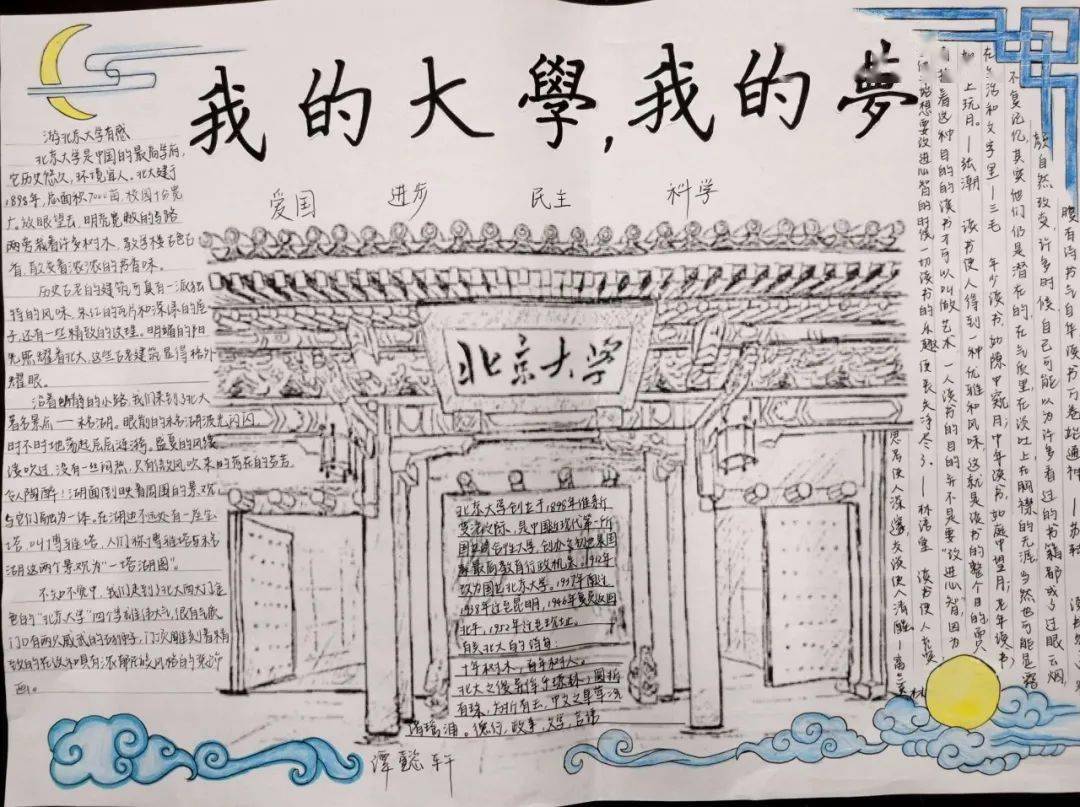 我的大學，我的夢
爱国 进步 民主 科学
游北京大学有感
北京大学是中国的最高学府，
它历史悠久，环境宜人。北大建于
1898年，总面积7000亩，校园十分宽
大。放眼望去，明亮宽敞的马路
两旁栽着许多树木，教学楼古色古
香，散发着浓浓的书香味。
历史古老的建筑可真有一派独
特的风味，朱红的瓦片和深绿的屋
子还有一些精致的纹理。明媚的阳
光照耀着北大，这些古老建筑显得格外
耀眼。
沿着幽静的小路，我们来到了北大
著名景点——未名湖。眼前的未名湖波光闪闪，
时不时地荡起层层涟漪。盛夏的风缓
缓吹过，没有一些闷热，只有微风吹来的
令人陶醉！湖面倒映着周围的景观，
与它们融为一体。在湖边不远处有一座宝
塔，叫博雅塔，人们称博雅塔与未名
湖这两个景观为“一塔湖图”。
不知不觉中，我们走到了北大西大门，金
色的“北京大学”四个字雄伟大气，很有气派
门口有两只威武的石狮子，门
北京大学
北京大学创立于1898年维新
变法之际，是中国近现代第一所
国立综合性大学，创办之初也是国
家最高教育行政机关。1912年
改为国立北京大学。1937年南迁
1938年迁至昆明，1946年复员返回
北平，1952年迁至现址。
十年树木，百年树人。
德行，政事，文学，言语
腹有诗书气自华读书万卷始通神——苏轼
颜自然改变，许多时候，自己可能以为许多看过的书籍都成了过眼云烟，
不复记忆，其实他们仍是潜在的，在气质里，在谈吐上，在胸襟的无涯，当然也可能显露
在生活和文字里——三毛 年少读书，如隙中窥月；中年读书，如庭中望月；老年读书，
如 上玩月。——张潮 读书使人得到一种优雅和风味，这就是读书的整个目的，而
抱着这种目的的读书才可以叫做艺术，一人读书的目的并不是要“改进心智”，因为
想要改进心智的时候，一切读书的乐趣便丧失净尽了。——林语堂
思考使人深邃，交谈使人清醒。——富兰克林